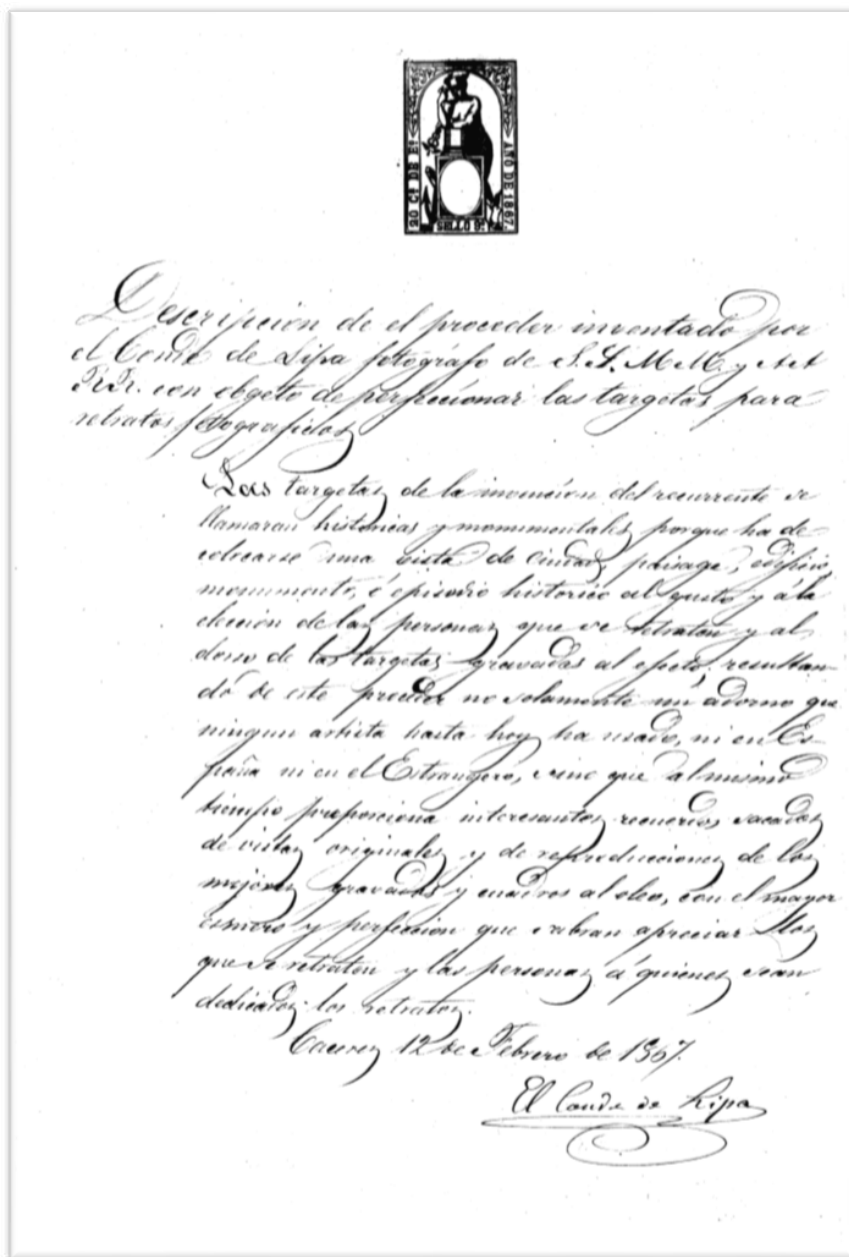 20 Cs DE Eo
AÑO DE 1867.
SELLO 9º
Descripción de el proceder inventado por
el Conde de Lipa fotógrafo de S.S. M.M. y A.A
R.R. con obgeto de perfeccionar las targetas para
retratos fotografiados
Las targetas de la invención del recurrente se
llamaran historicas y monumentales porque ha de
colocarse una vista de ciudad, paisage, edificio,
monumento, ó episodio historico al gusto y á la
elección de las personas que se retraten y al
dorso de las targetas gravadas al efecto, resultan-
do de este proceder no solamente un adorno que
ningun artista hasta hoy ha usado, ni en Es-
paña ni en el Estrangero, sino que al mismo
tiempo proporciona interesantes recuerdos sacados
de vistas originales y de reproducciones de los
mejores gravados y cuadros al oleo, con el mayor
esmero y perfección que sabran apreciar los
que se retraten y las personas á quienes sean
dedicados los retratos.
Caceres 12 de Febrero de 1867.
El Conde de Lipa